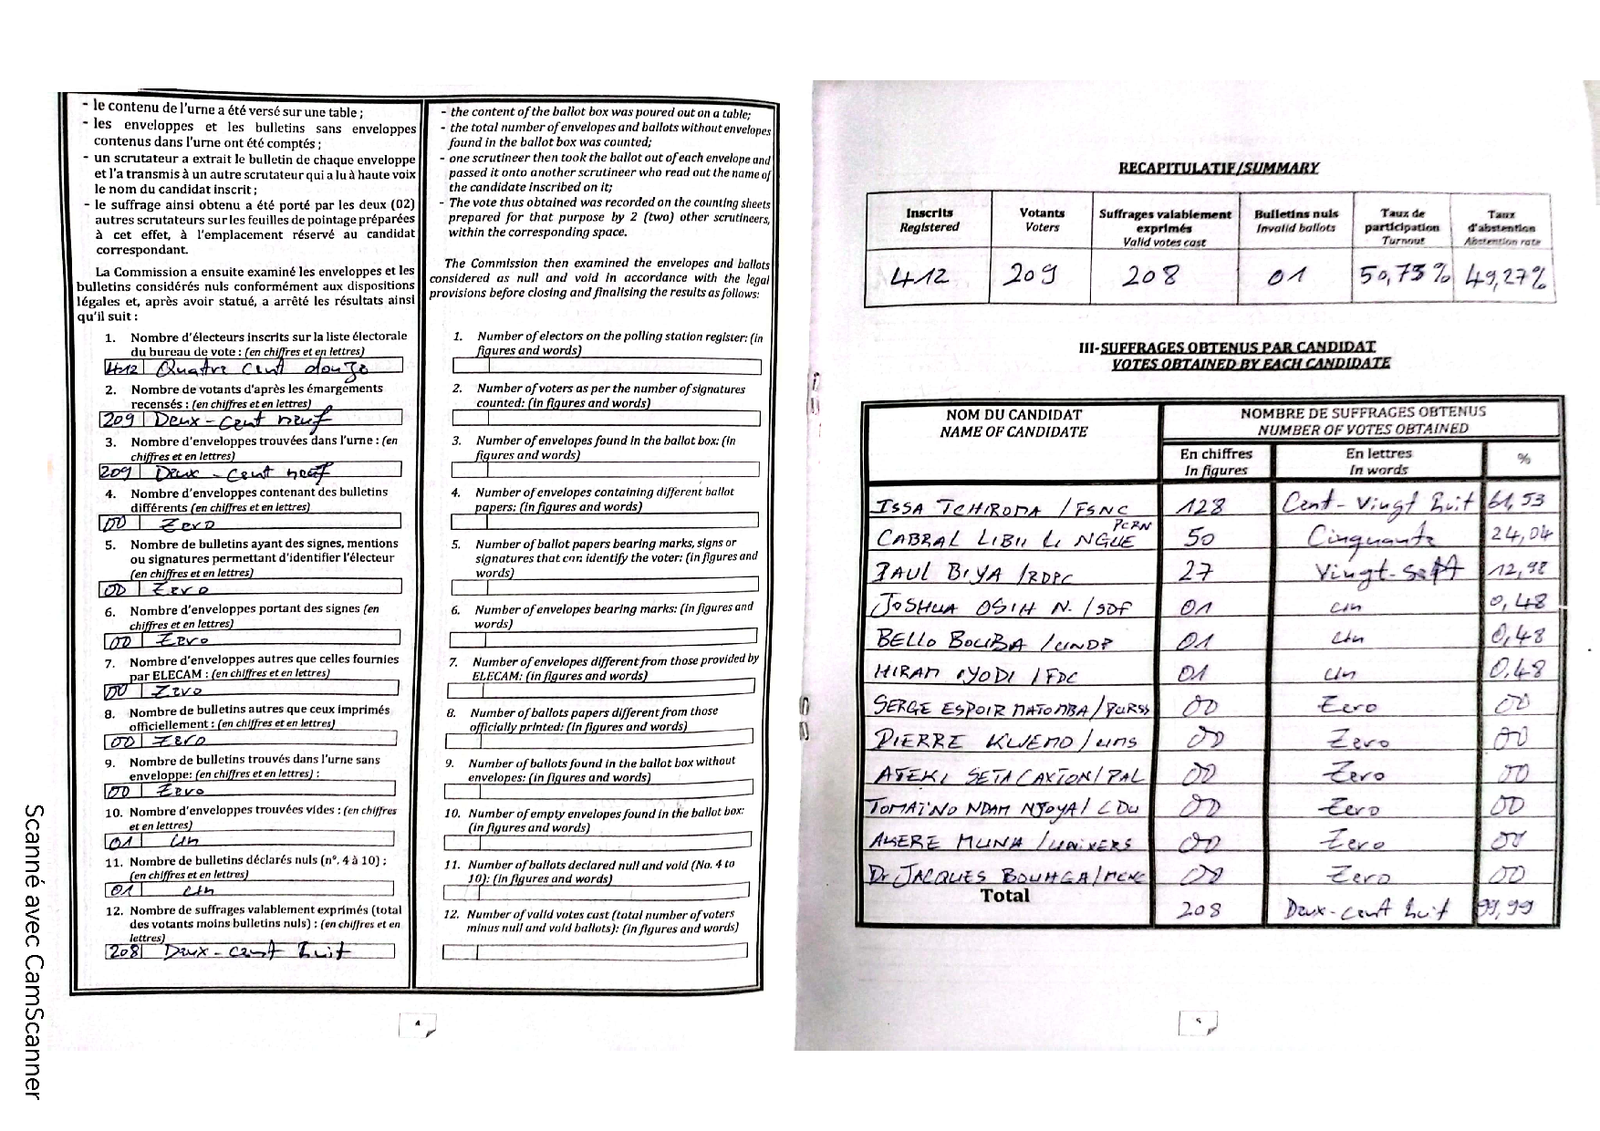 - le contenu de l'urne a été versé sur une table ;
- les enveloppes et les bulletins sans enveloppes
contenus dans l'urne ont été comptés ;
- un scrutateur a extrait le bulletin de chaque enveloppe
et l'a transmis à un autre scrutateur qui a lu à haute voix
le nom du candidat inscrit ;
- le suffrage ainsi obtenu a été porté par les deux (02)
autres scrutateurs sur les feuilles de pointage préparées
à cet effet, à l'emplacement réservé au candidat
correspondant.
La Commission a ensuite examiné les enveloppes et les
bulletins considérés nuls conformément aux dispositions
légales et, après avoir statué, a arrêté les résultats ainsi
qu'il suit :
1. Nombre d'électeurs inscrits sur la liste électorale
du bureau de vote : (en chiffres et en lettres)
412 Quatre cent douze
2. Nombre de votants d'après les émargements
recensés : (en chiffres et en lettres)
209 Deux-cent neuf
3. Nombre d'enveloppes trouvées dans l'urne : (en
chiffres et en lettres)
209 Deux-cent neuf
4. Nombre d'enveloppes contenant des bulletins
différents (en chiffres et en lettres)
00 Zero
5. Nombre de bulletins ayant des signes, mentions
ou signatures permettant d'identifier l'électeur
(en chiffres et en lettres)
00 Zero
6. Nombre d'enveloppes portant des signes (en
chiffres et en lettres)
00 Zero
7. Nombre d'enveloppes autres que celles fournies
par ELECAM : (en chiffres et en lettres)
00 Zero
8. Nombre de bulletins autres que ceux imprimés
officiellement : (en chiffres et en lettres)
00 Zero
9. Nombre de bulletins trouvés dans l'urne sans
enveloppe: (en chiffres et en lettres) :
00 Zero
10. Nombre d'enveloppes trouvées vides : (en chiffres
et en lettres)
01 Un
11. Nombre de bulletins déclarés nuls (n°. 4 à 10) :
(en chiffres et en lettres)
01 un
12. Nombre de suffrages valablement exprimés (total
des votants moins bulletins nuls) : (en chiffres et en
lettres)
208 Deux-cent huit
- the content of the ballot box was poured out on a table;
- the total number of envelopes and ballots without envelopes
found in the ballot box was counted;
- one scrutineer then took the ballot out of each envelope and
passed it onto another scrutineer who read out the name of
the candidate inscribed on it;
- The vote thus obtained was recorded on the counting sheets
prepared for that purpose by 2 (two) other scrutineers,
within the corresponding space.
The Commission then examined the envelopes and ballots
considered as null and void in accordance with the legal
provisions before closing and finalising the results as follows:
1. Number of electors on the polling station register: (in
figures and words)
2. Number of voters as per the number of signatures
counted: (in figures and words)
3. Number of envelopes found in the ballot box: (in
figures and words)
4. Number of envelopes containing different ballot
papers: (in figures and words)
5. Number of ballot papers bearing marks, signs or
signatures that can identify the voter: (in figures and
words)
6. Number of envelopes bearing marks: (in figures and
words)
7. Number of envelopes different from those provided by
ELECAM: (in figures and words)
8. Number of ballots papers different from those
officially printed: (in figures and words)
9. Number of ballots found in the ballot box without
envelopes: (in figures and words)
10. Number of empty envelopes found in the ballot box:
(in figures and words)
11. Number of ballots declared null and void (No. 4 to
10): (in figures and words)
12. Number of valid votes cast (total number of voters
minus null and void ballots): (in figures and words)
4
RECAPITULATIF/SUMMARY
Inscrits Votants Suffrages valablement Bulletins nuls Taux de Taux
Registered Voters exprimés Invalid ballots participation d'abstention
Valid votes cast Turnout Abstention rate
412 209 208 01 50,73% 49,27%
III-SUFFRAGES OBTENUS PAR CANDIDAT
VOTES OBTAINED BY EACH CANDIDATE
NOM DU CANDIDAT NOMBRE DE SUFFRAGES OBTENUS
NAME OF CANDIDATE NUMBER OF VOTES OBTAINED
En chiffres En lettres %
In figures In words
ISSA TCHIROMA / FSNC 128 Cent-Vingt huit 61,53
CABRAL LIBII LI NGUE PCRN 50 Cinquante 24,04
PAUL BIYA /RDPC 27 Vingt-Sept 12,98
JOSHUA OSIH N. /SDF 01 un 0,48
BELLO BOUBA /UNDP 01 Un 0,48
HIRAM IYODI /FDC 01 Un 0,48
SERGE ESPOIR MATOMBA/PURSS 00 Zero 00
PIERRE KWEMO /UMS 00 Zero 00
ATEKI SETA CAXTON/PAL 00 Zero 00
TOMAÏNO NDAM NJOYA/ CDU 00 Zero 00
AKERE MUNA /UNIVERS 00 Zero 00
Dr JACQUES BOUHGA/MCNC 00 Zero 00
Total 208 Deux-cent huit 99,99
5
Scanné avec CamScanner